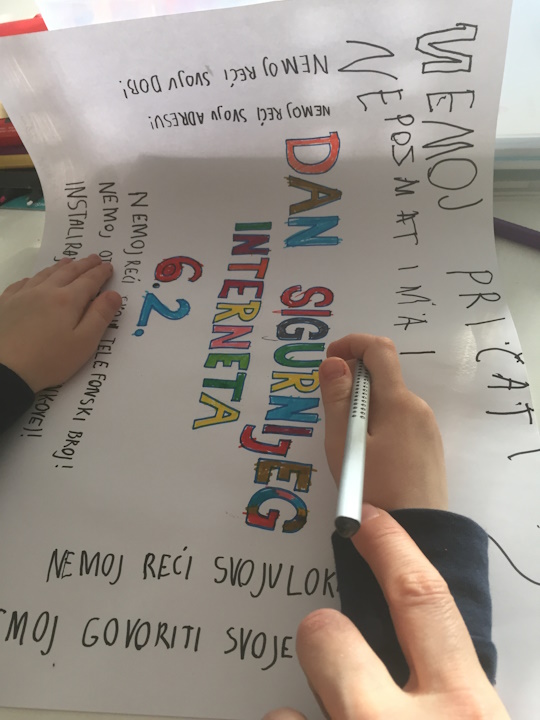 NEMOJ PRIČAT
NEPOZNATIMA I
NEMOJ REĆI SVOJU DOB!
NEMOJ REĆI SVOJU ADRESU!
DAN SIGURNIJEG
INTERNETA
6.2.
NEMOJ REĆI TELEFONSKI BROJ!
NEMOJ
NEMOJ REĆI SVOJU
GOVORITI SVOJE